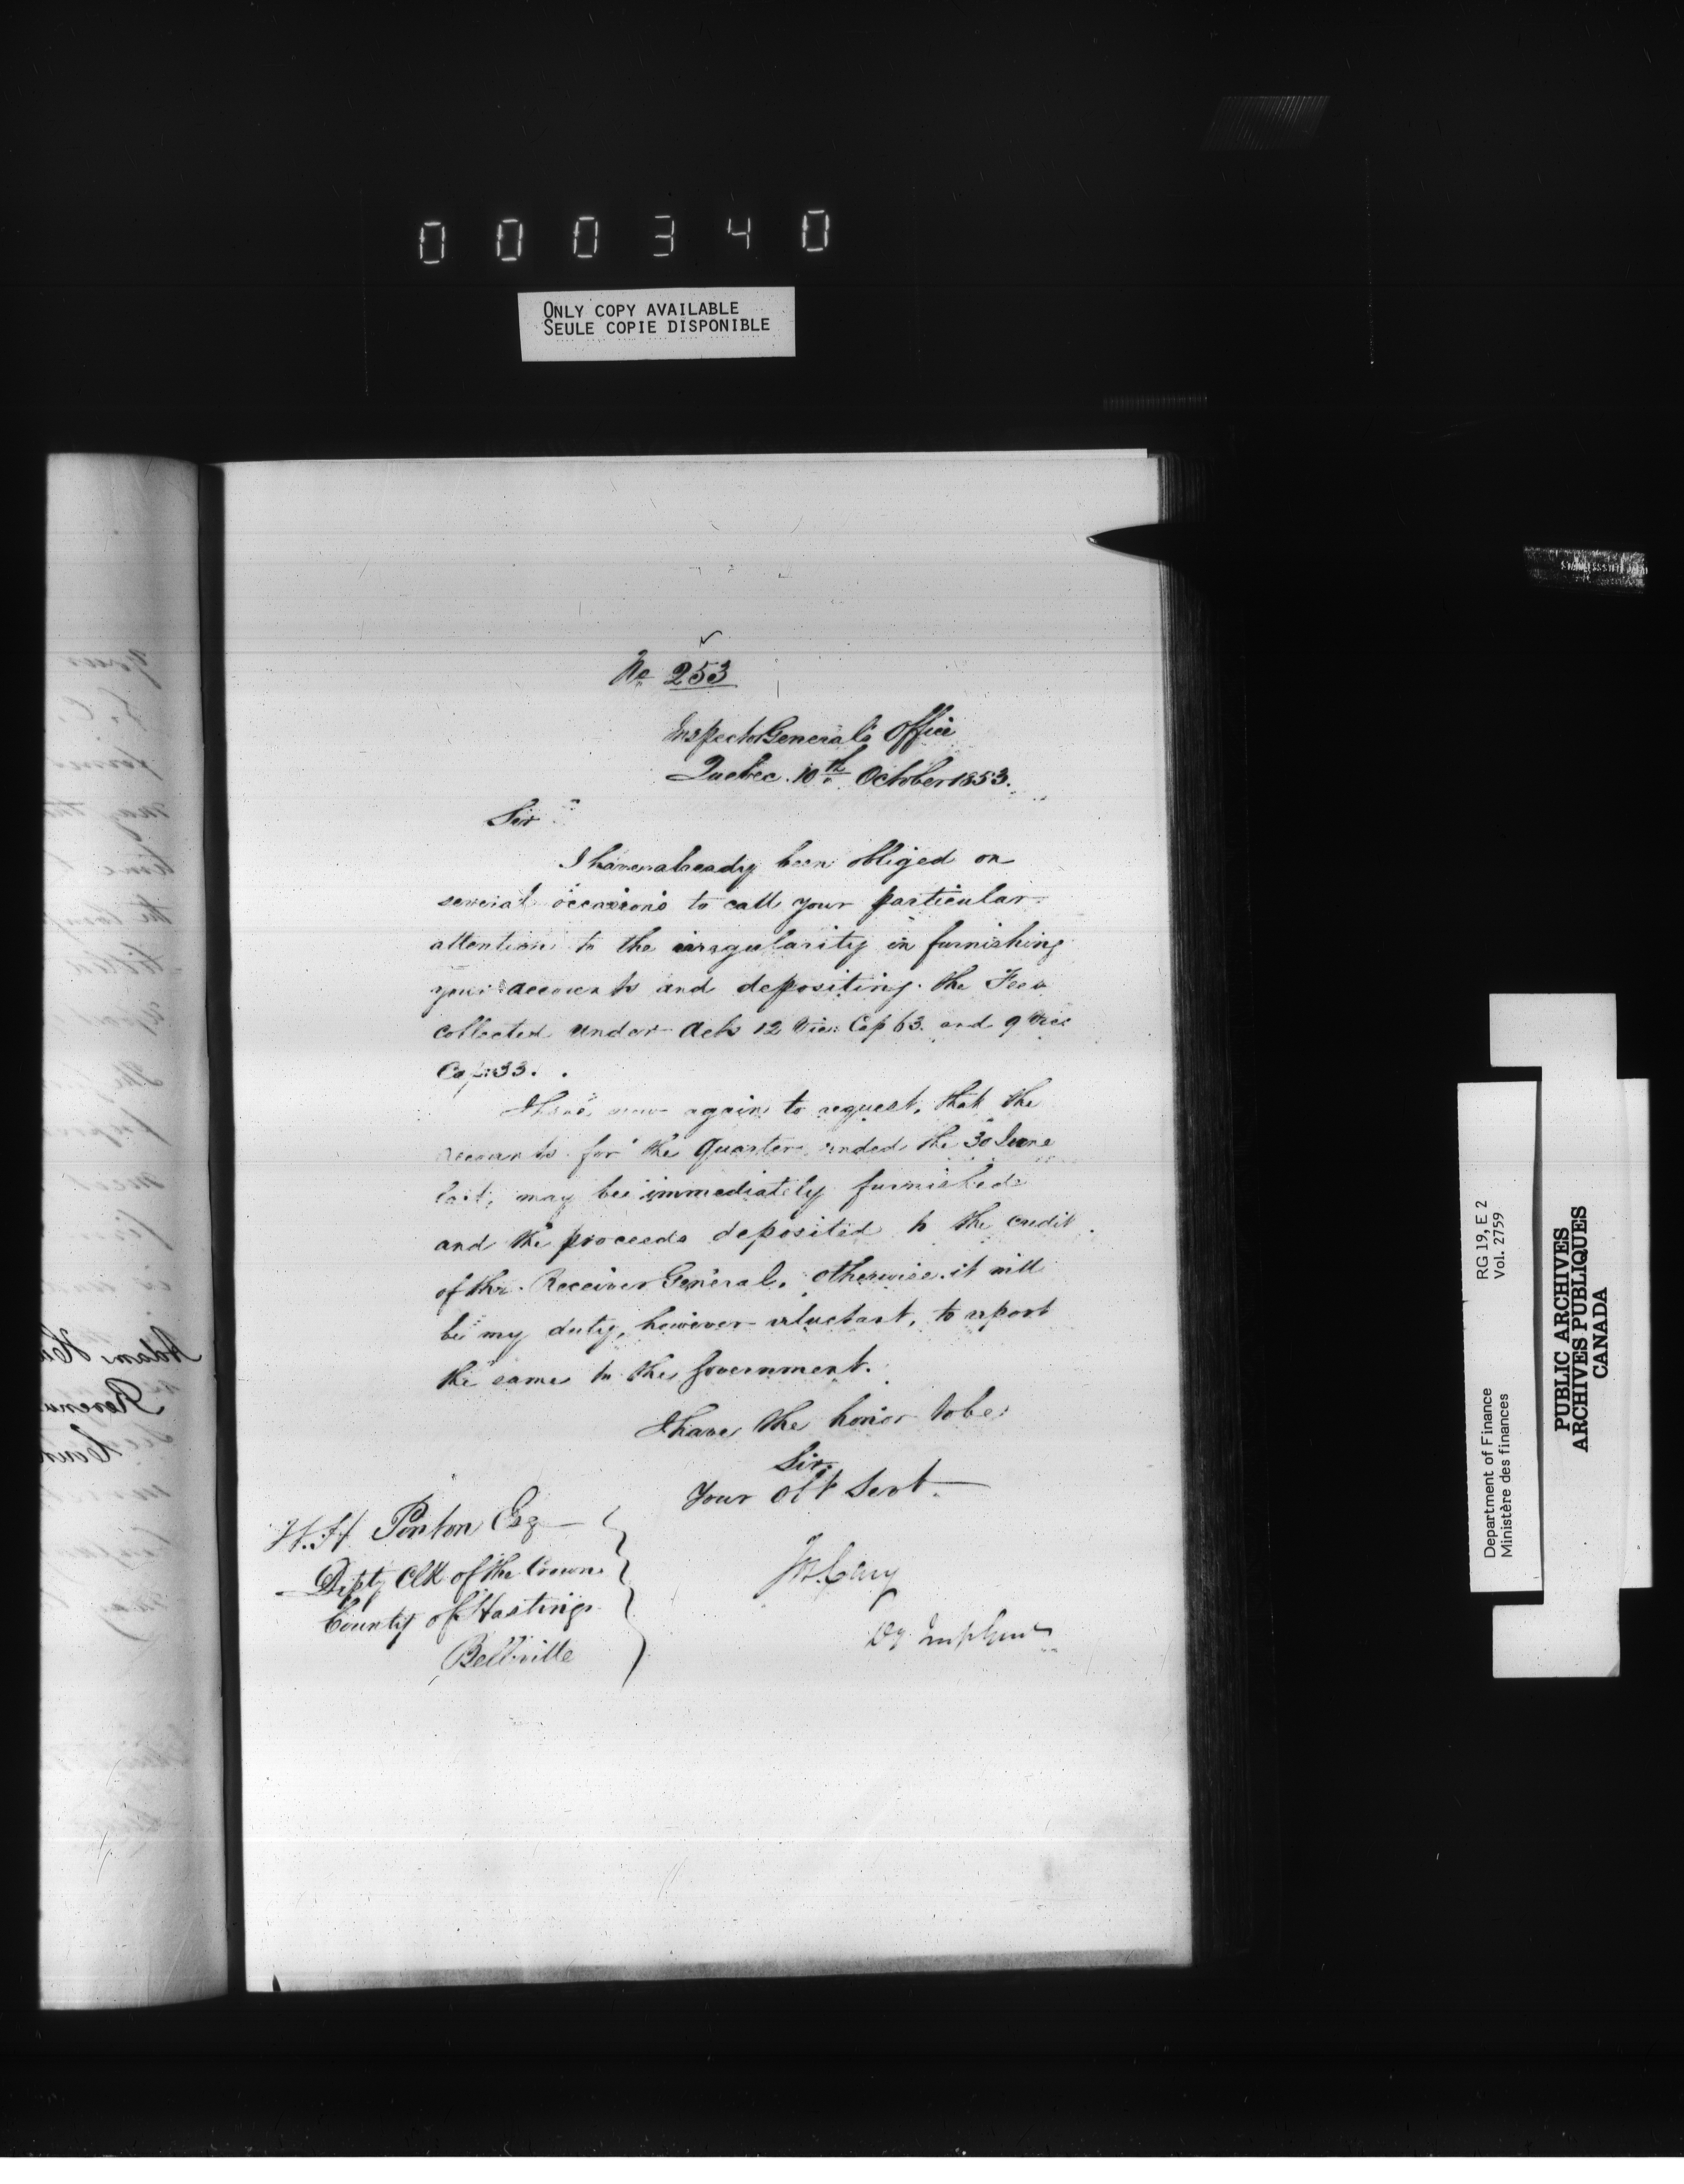 000340
ONLY COPY AVAILABLE
SEULE COPIE DISPONIBLE
No 253
Inspector General's Office
Quebec. 10th October 1853.
Sir
I have already been obliged on
several occasions to call your particular
attention to the irregularity in furnishing
your accounts and depositing the Fees
collected under Acts 12 Vic: Cap 63. and 9 Vic:
Cap: 33.
I have now again to request, that the
accounts for the Quarter ended the 30 June
last, may be immediately furnished
and the proceeds deposited to the credit
of the Receiver General. otherwise it will
be my duty, however reluctant, to report
the same to the Government.
I have the honor to be
Sir,
Your Obt Servt
W. H Ponton Esq
Dipty Clk of the Crown
County of Hastings
Bellville
Jos. Cary
Dy Insp Genl
RG 19, E 2
Vol. 2759
Department of Finance
Ministère des finances
PUBLIC ARCHIVES
ARCHIVES PUBLIQUES
CANADA